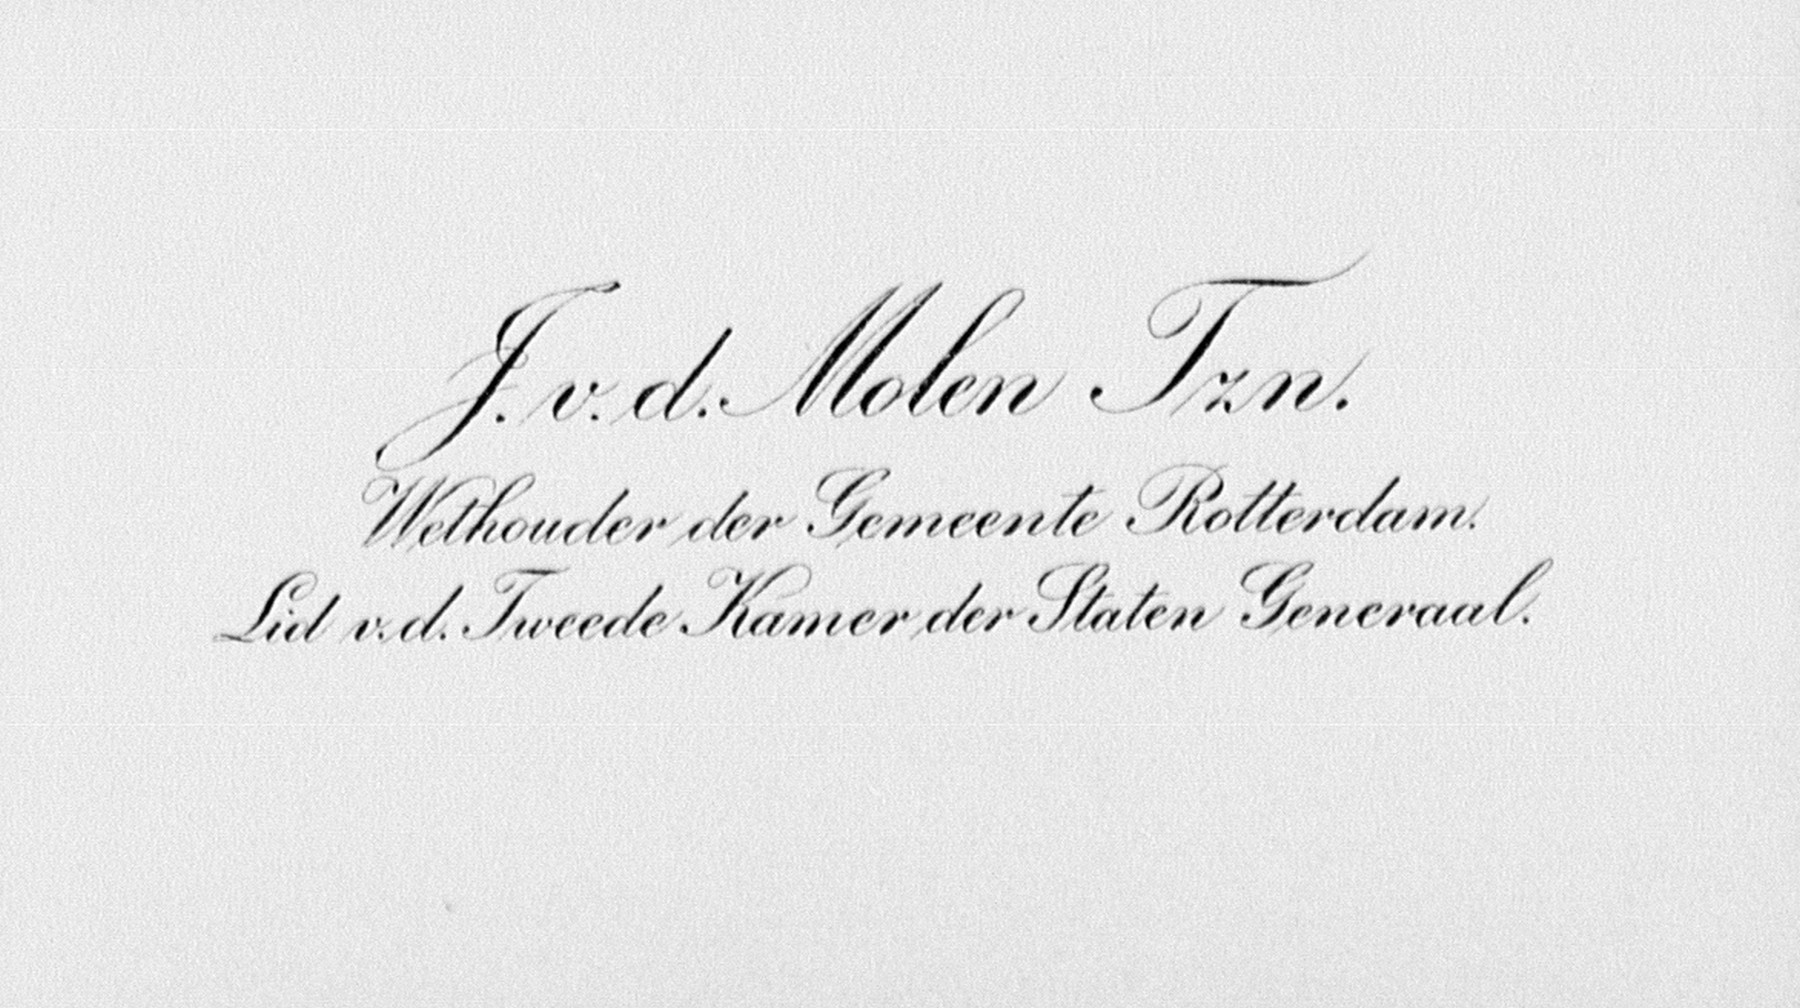 J. v. d. Molen Tzn.
Wethouder der Gemeente Rotterdam.
Lid v. d. Tweede Kamer der Staten Generaal.